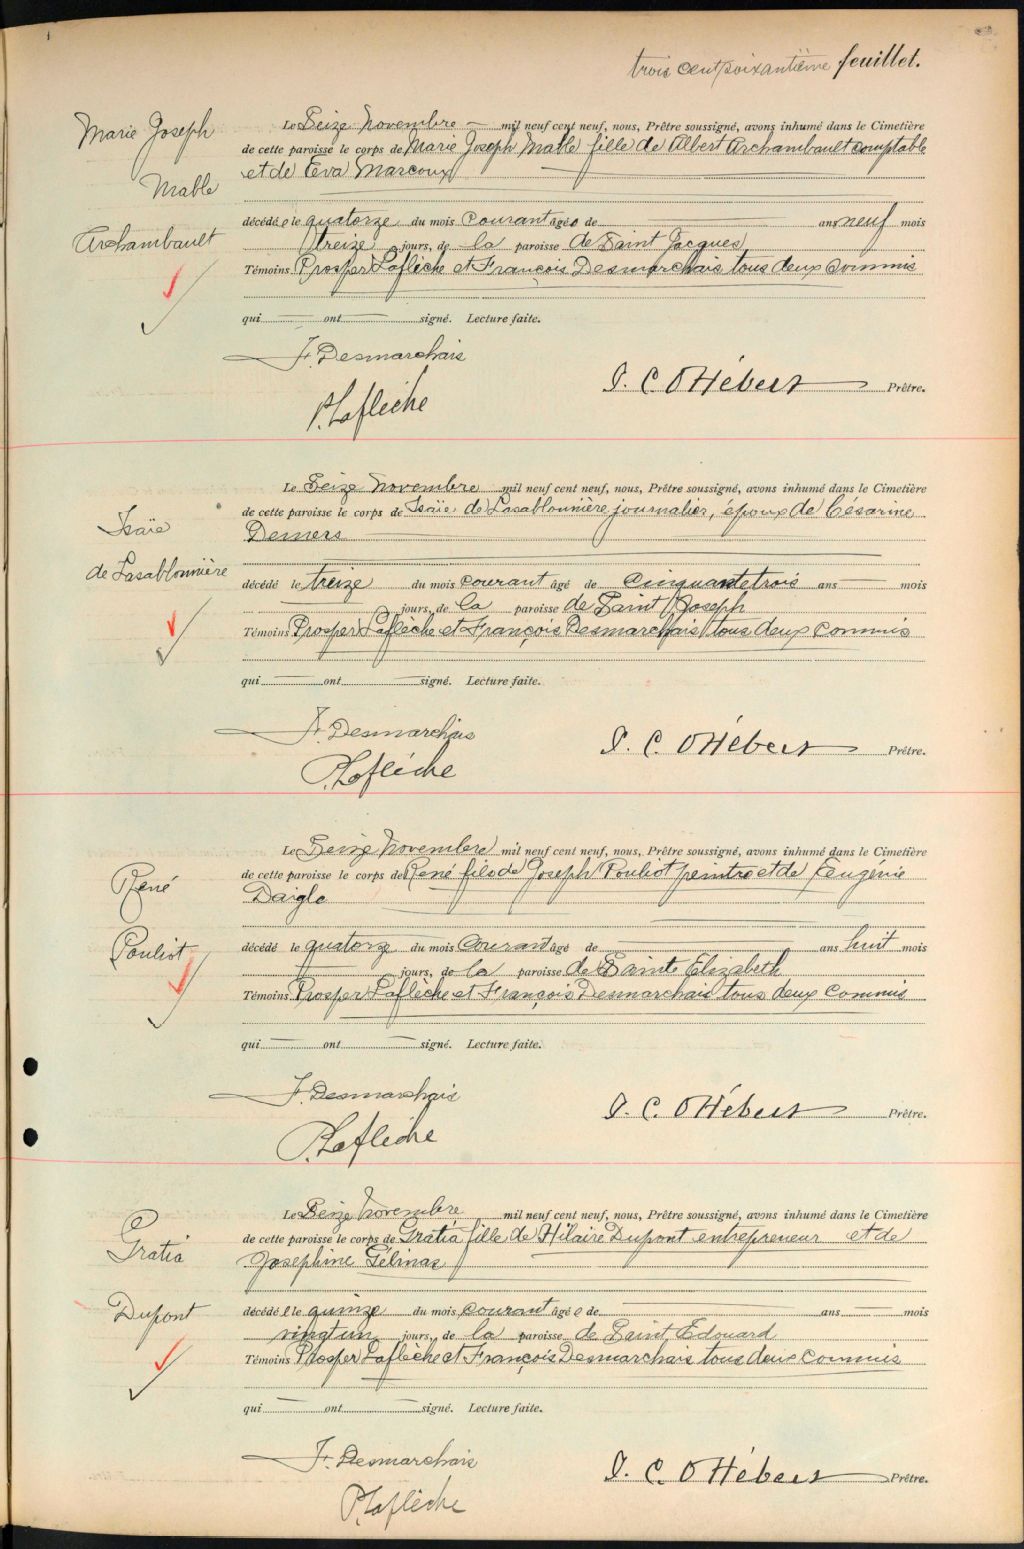 trois cent soixantième feuillet.
Marie Joseph
Mable
Archambault
Le Seize Novembre — mil neuf cent neuf, nous, Prêtre soussigné, avons inhumé dans le Cimetière
de cette paroisse le corps de Marie Joseph Mable fille de Albert Archambault comptable
et de Eva Marcoux
décédé e le quatorze du mois courant âgé e de — ans neuf mois
treize jours, de la paroisse de Saint Jacques
Témoins Prosper Laflèche et François Desmarchais tous deux commis
qui — ont — signé. Lecture faite.
F. Desmarchais
P. Laflèche
J. C. O Hébert Prêtre.
Isaïe
de Lasablonnière
Le Seize Novembre mil neuf cent neuf, nous, Prêtre soussigné, avons inhumé dans le Cimetière
de cette paroisse le corps de Isaïe de Lasablonnière journalier, époux de Césarine
Demers
décédé le treize du mois courant âgé de cinquante trois ans — mois
— jours, de la paroisse de Saint Joseph
Témoins Prosper Laflèche et François Desmarchais tous deux commis
qui — ont — signé. Lecture faite.
F. Desmarchais
P. Laflèche
J. C. O Hébert Prêtre.
René
Pouliot
Le Seize Novembre mil neuf cent neuf, nous, Prêtre soussigné, avons inhumé dans le Cimetière
de cette paroisse le corps de René fils de Joseph Pouliot peintre et de Eugénie
Daigle
décédé le quatorze du mois courant âgé de — ans huit mois
— jours, de la paroisse de Sainte Elizabeth
Témoins Prosper Laflèche et François Desmarchais tous deux commis
qui — ont — signé. Lecture faite.
F. Desmarchais
P. Laflèche
J. C. O Hébert Prêtre.
Gratia
Dupont
Le Seize Novembre mil neuf cent neuf, nous, Prêtre soussigné, avons inhumé dans le Cimetière
de cette paroisse le corps de Gratia fille de Hilaire Dupont entrepreneur et de
Josephine Gélinas
décédé e le quinze du mois courant âgé e de — ans — mois
vingt un jours, de la paroisse de Saint Edouard
Témoins Prosper Laflèche et François Desmarchais tous deux commis
qui — ont — signé. Lecture faite.
F. Desmarchais
P. Laflèche
J. C. O Hébert Prêtre.